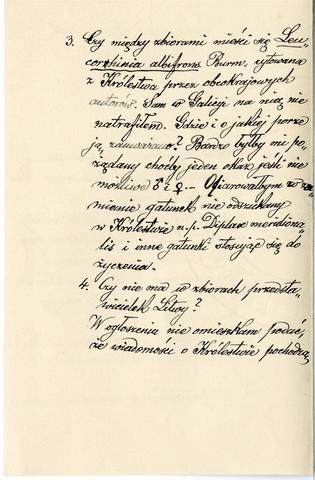 3. Czy między zbiorami mieści się Leu-
corrhinia albifrons Burm. cytowana
z Królestwa przez obcokrajowych
autorów. Sam w Galicyi na nią nie
natrafiłem. Gdzie i o jakiej porze
ją zauważano? Bardzo byłby mi po,
żądany choćby jeden okaz jeśli nie
możliwe ♂ i ♀ ... Ofiarowałbym w za,
mianie gatunek nie odszukany
w Królestwie n.p. Diplax meridiona,
lis i inne gatunki stosując się do
życzenia.
4. Czy nie ma w zbiorach przedsta,
wicielek Litwy?
W ogłoszeniu nie omieszkam podać,
że wiadomości o Królestwie pochodzą